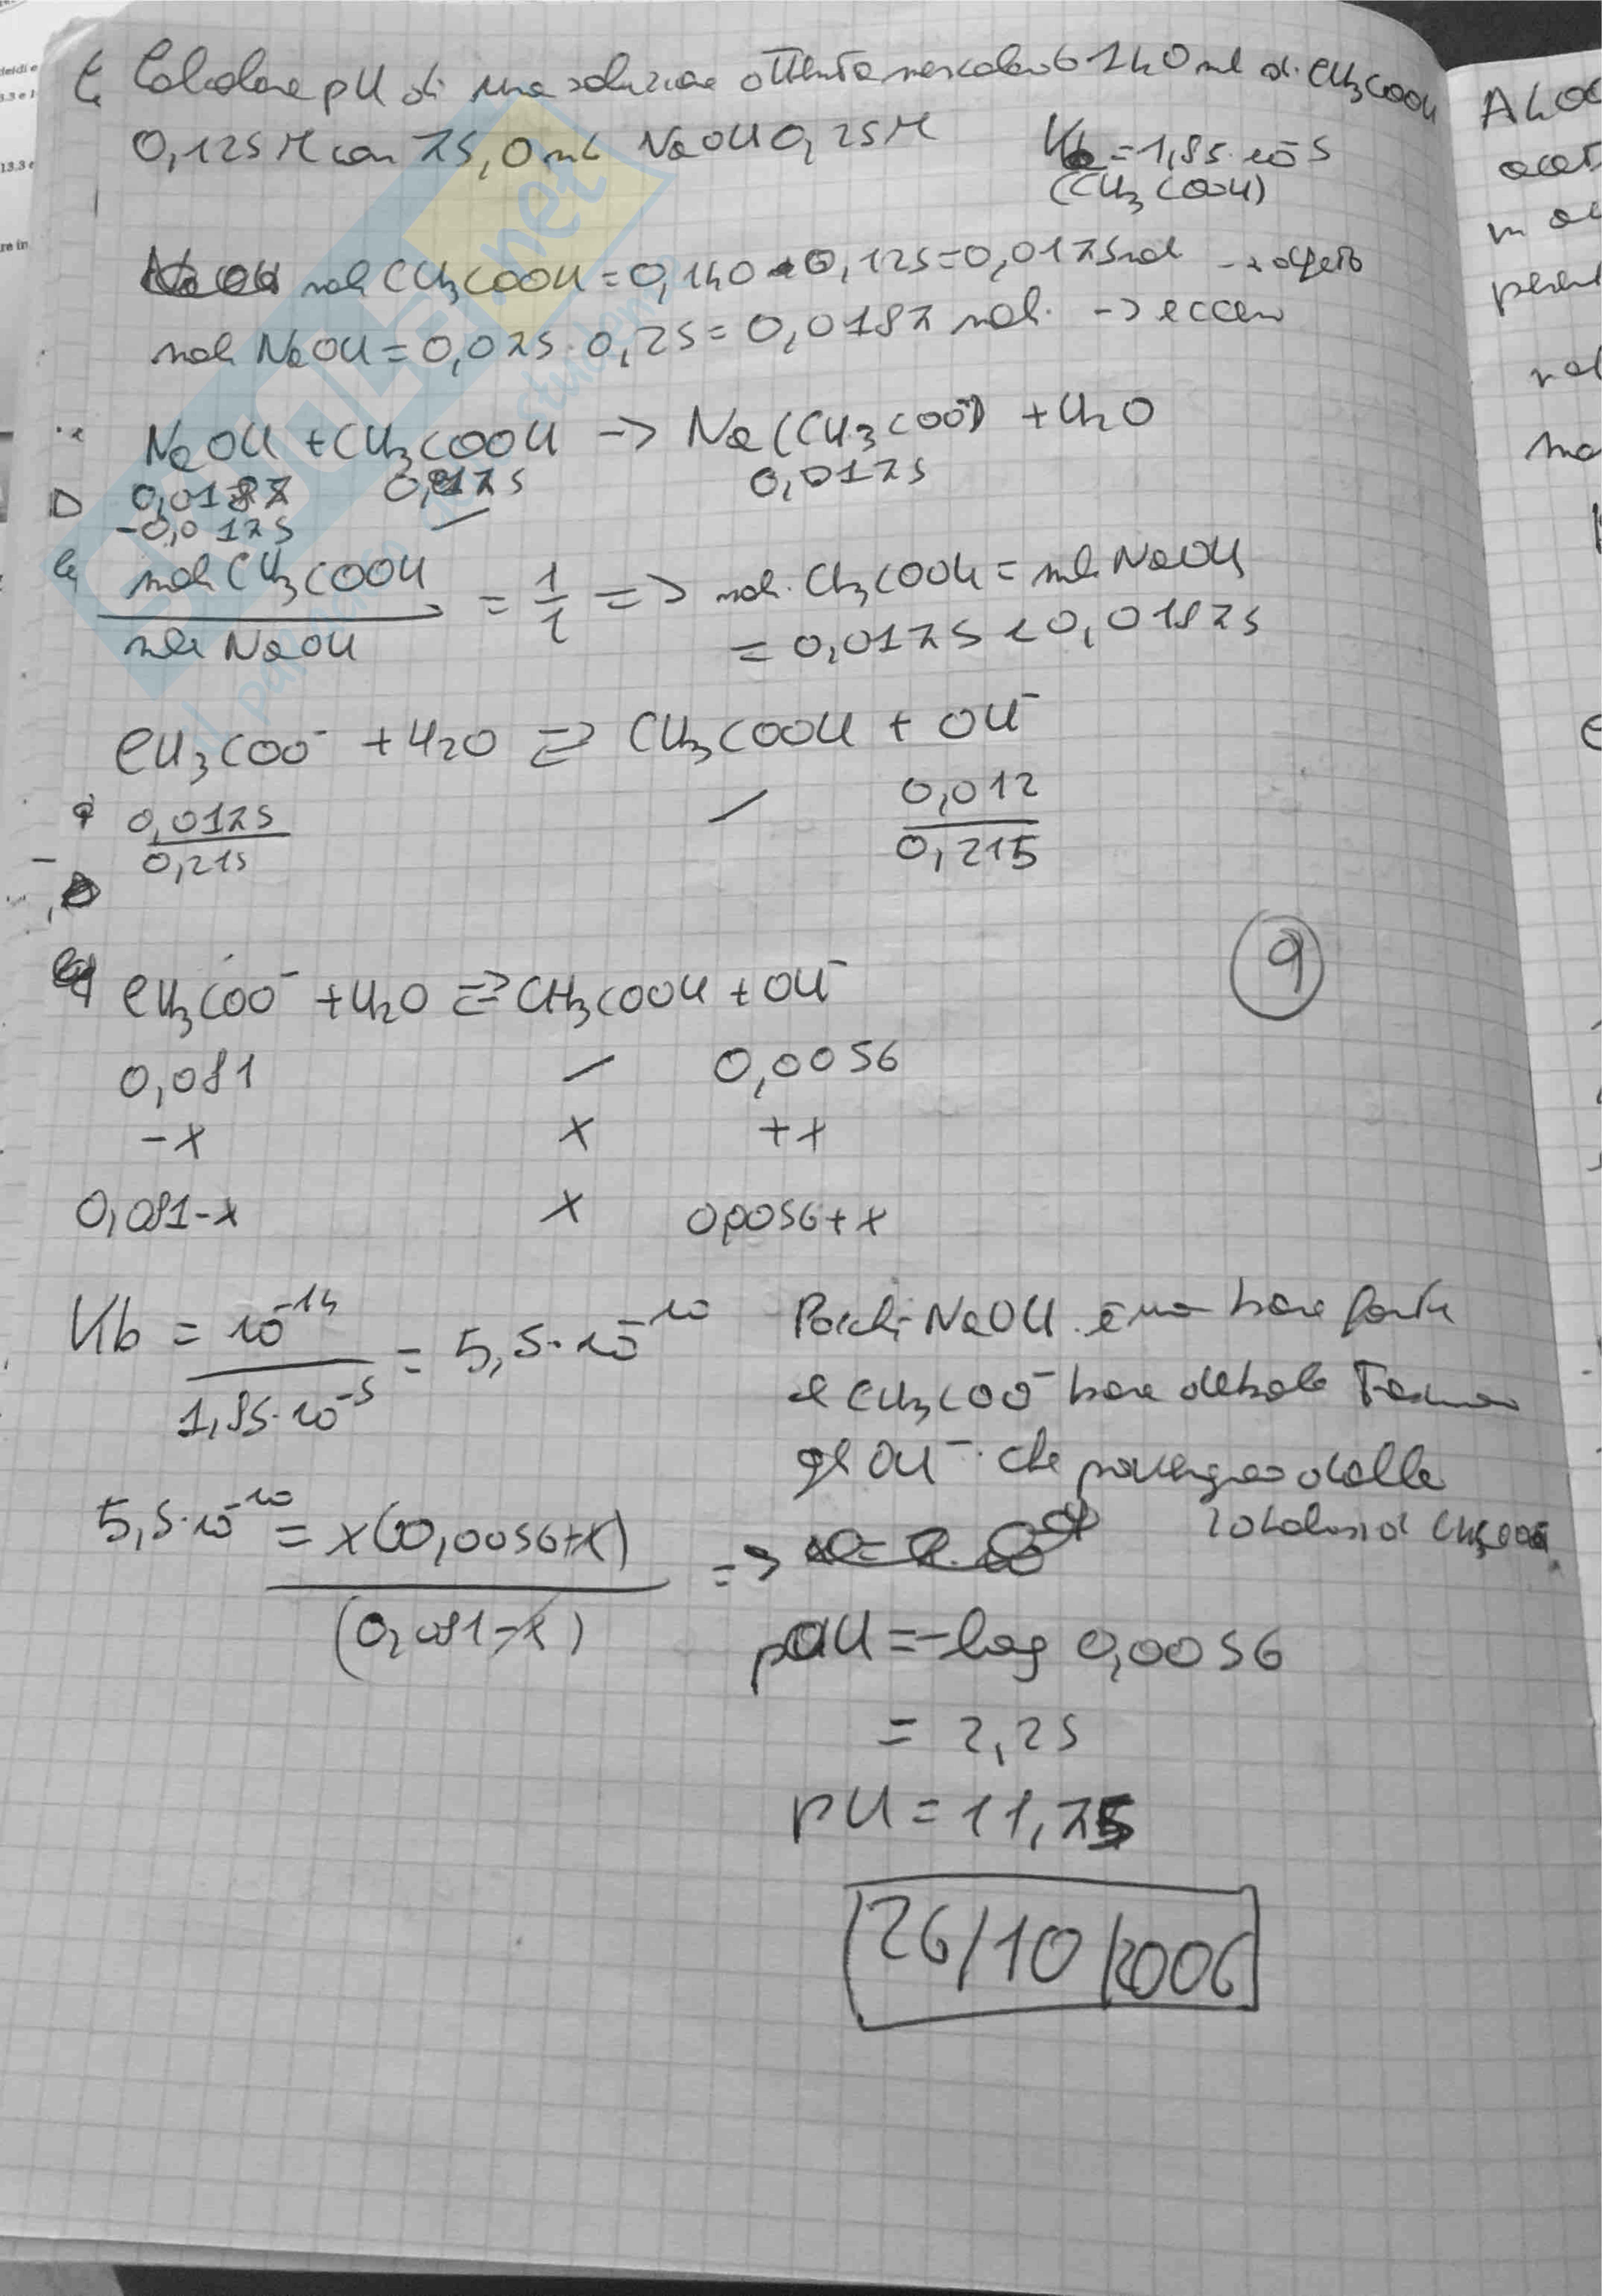 E. Calcolare pH di una soluzione ottenuta mescolando 140 ml di CH3COOH
0,125M con 75,0 mL NaOH 0,25M
Ka = 1,85·10^-5
(CH3COOH)
moli CH3COOH = 0,140·0,125 = 0,0175 mol → difetto
moli NaOH = 0,075·0,25 = 0,0187 mol. → eccesso
NaOH + CH3COOH → Na(CH3COO) + H2O
0,0187 0,0175 0,0175
-0,0175 —
moli CH3COOH / moli NaOH = 1/1 => mol. CH3COOH = mol NaOH
= 0,0175 < 0,01875
CH3COO^- + H2O ⇌ CH3COOH + OH^-
0,0175/0,215 — 0,012/0,215
9
CH3COO^- + H2O ⇌ CH3COOH + OH^-
0,081 — 0,0056
-x x +x
0,081-x x 0,0056+x
Kb = 10^-14 / 1,85·10^-5 = 5,5·10^-10
Poiché NaOH è una base forte
e CH3COO^- base debole
gli OH^- che provengono dalla
5,5·10^-10 = x(0,0056+x) / (0,081-x) =>
pOH = -log 0,0056
= 2,25
pH = 11,75
26/10/2006